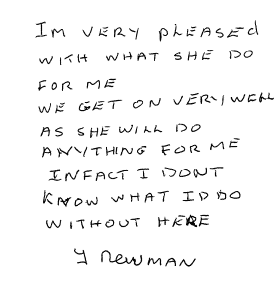 IM VERY PLEASED
WITH WHAT SHE DO
FOR ME
WE GET ON VERY WELL
AS SHE WILL DO
ANYTHING FOR ME
INFACT I DONT
KNOW WHAT ID DO
WITHOUT HERE
Y NEWMAN